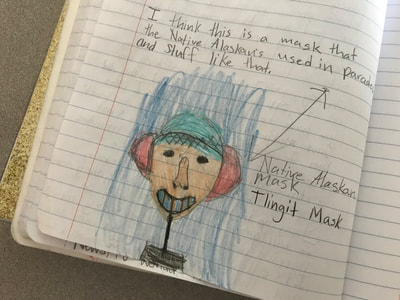 I think this is a mask that
the Native Alaskan's used in parades
and stuff like that.
Native Alaskan
mask
Tlingit Mask